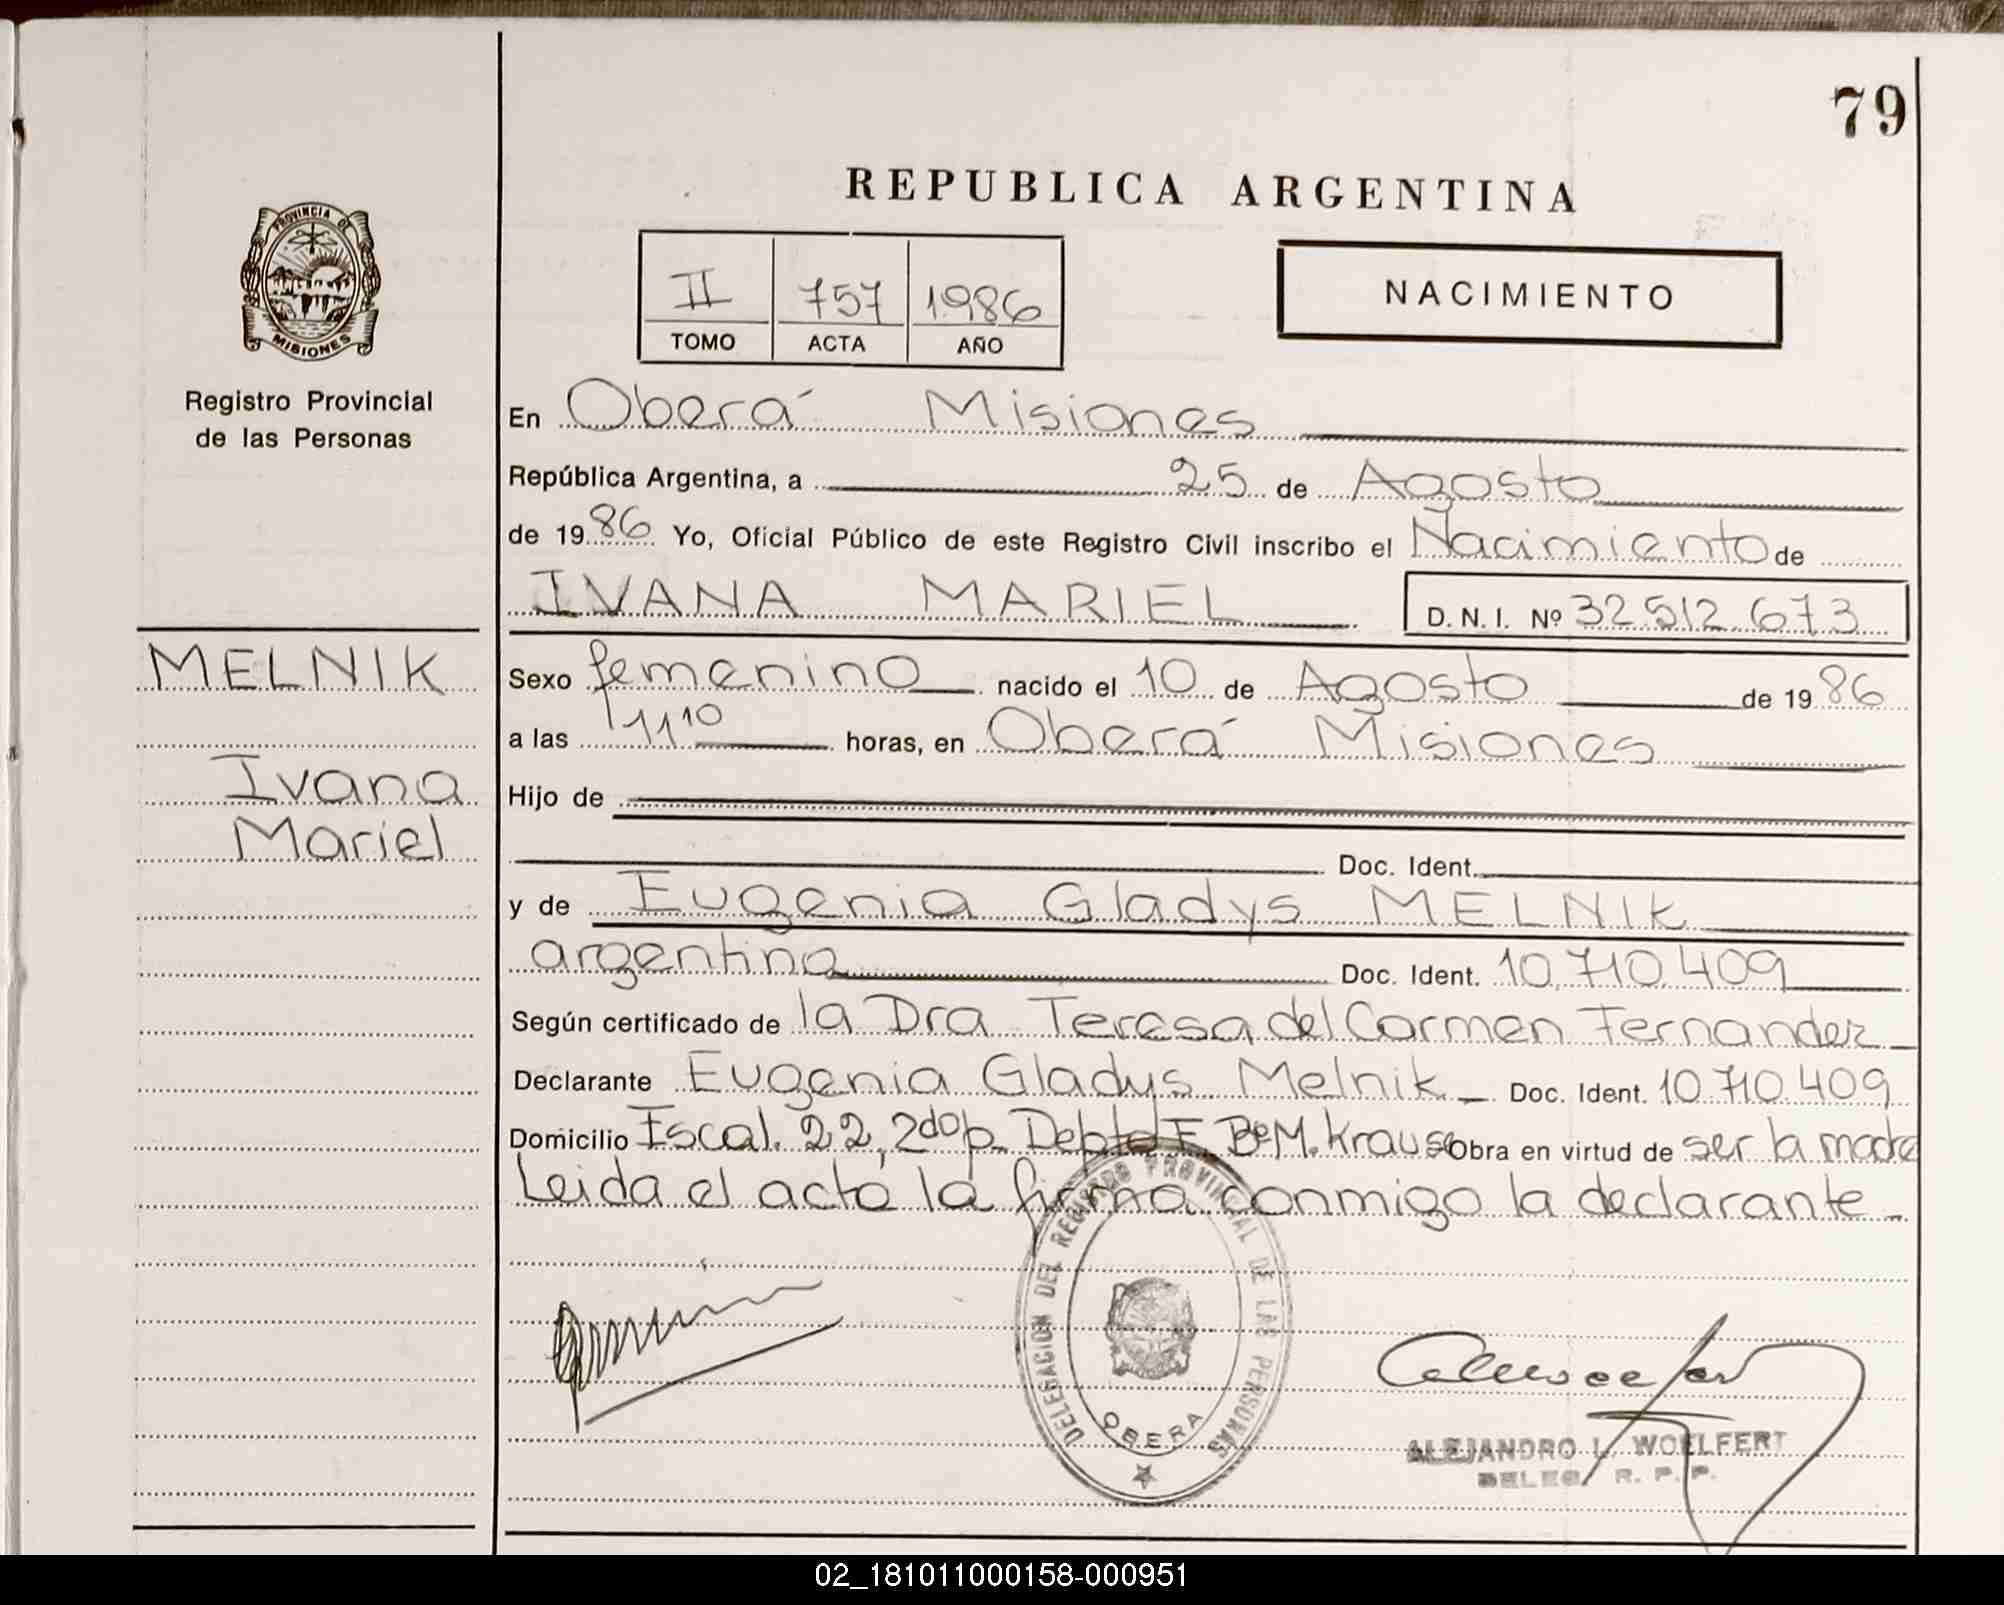 79
REPUBLICA ARGENTINA
PROVINCIA DE
MISIONES
II 757 1986
TOMO ACTA AÑO
NACIMIENTO
Registro Provincial
de las Personas
En Oberá Misiones
República Argentina, a 25 de Agosto
de 1986 Yo, Oficial Público de este Registro Civil inscribo el Nacimiento de
IVANA MARIEL D.N.I. Nº 32.512.673
MELNIK
Ivana
Mariel
Sexo femenino nacido el 10 de Agosto de 1986
a las 11 10 horas, en Oberá Misiones
Hijo de
Doc. Ident.
y de Eugenia Gladys MELNIK
argentina Doc. Ident. 10.710.409
Según certificado de la Dra Teresa del Carmen Fernandez
Declarante Eugenia Gladys Melnik Doc. Ident. 10.710.409
Domicilio Escal. 22, 2do p. Depto F Bº M. Krause Obra en virtud de ser la madre
Leida el acta la firma conmigo la declarante
DELEGACION DEL REGISTRO PROVINCIAL DE LAS PERSONAS
OBERA
ALEJANDRO L. WOELFERT
DELEG. R. P. P.
02_181011000158-000951